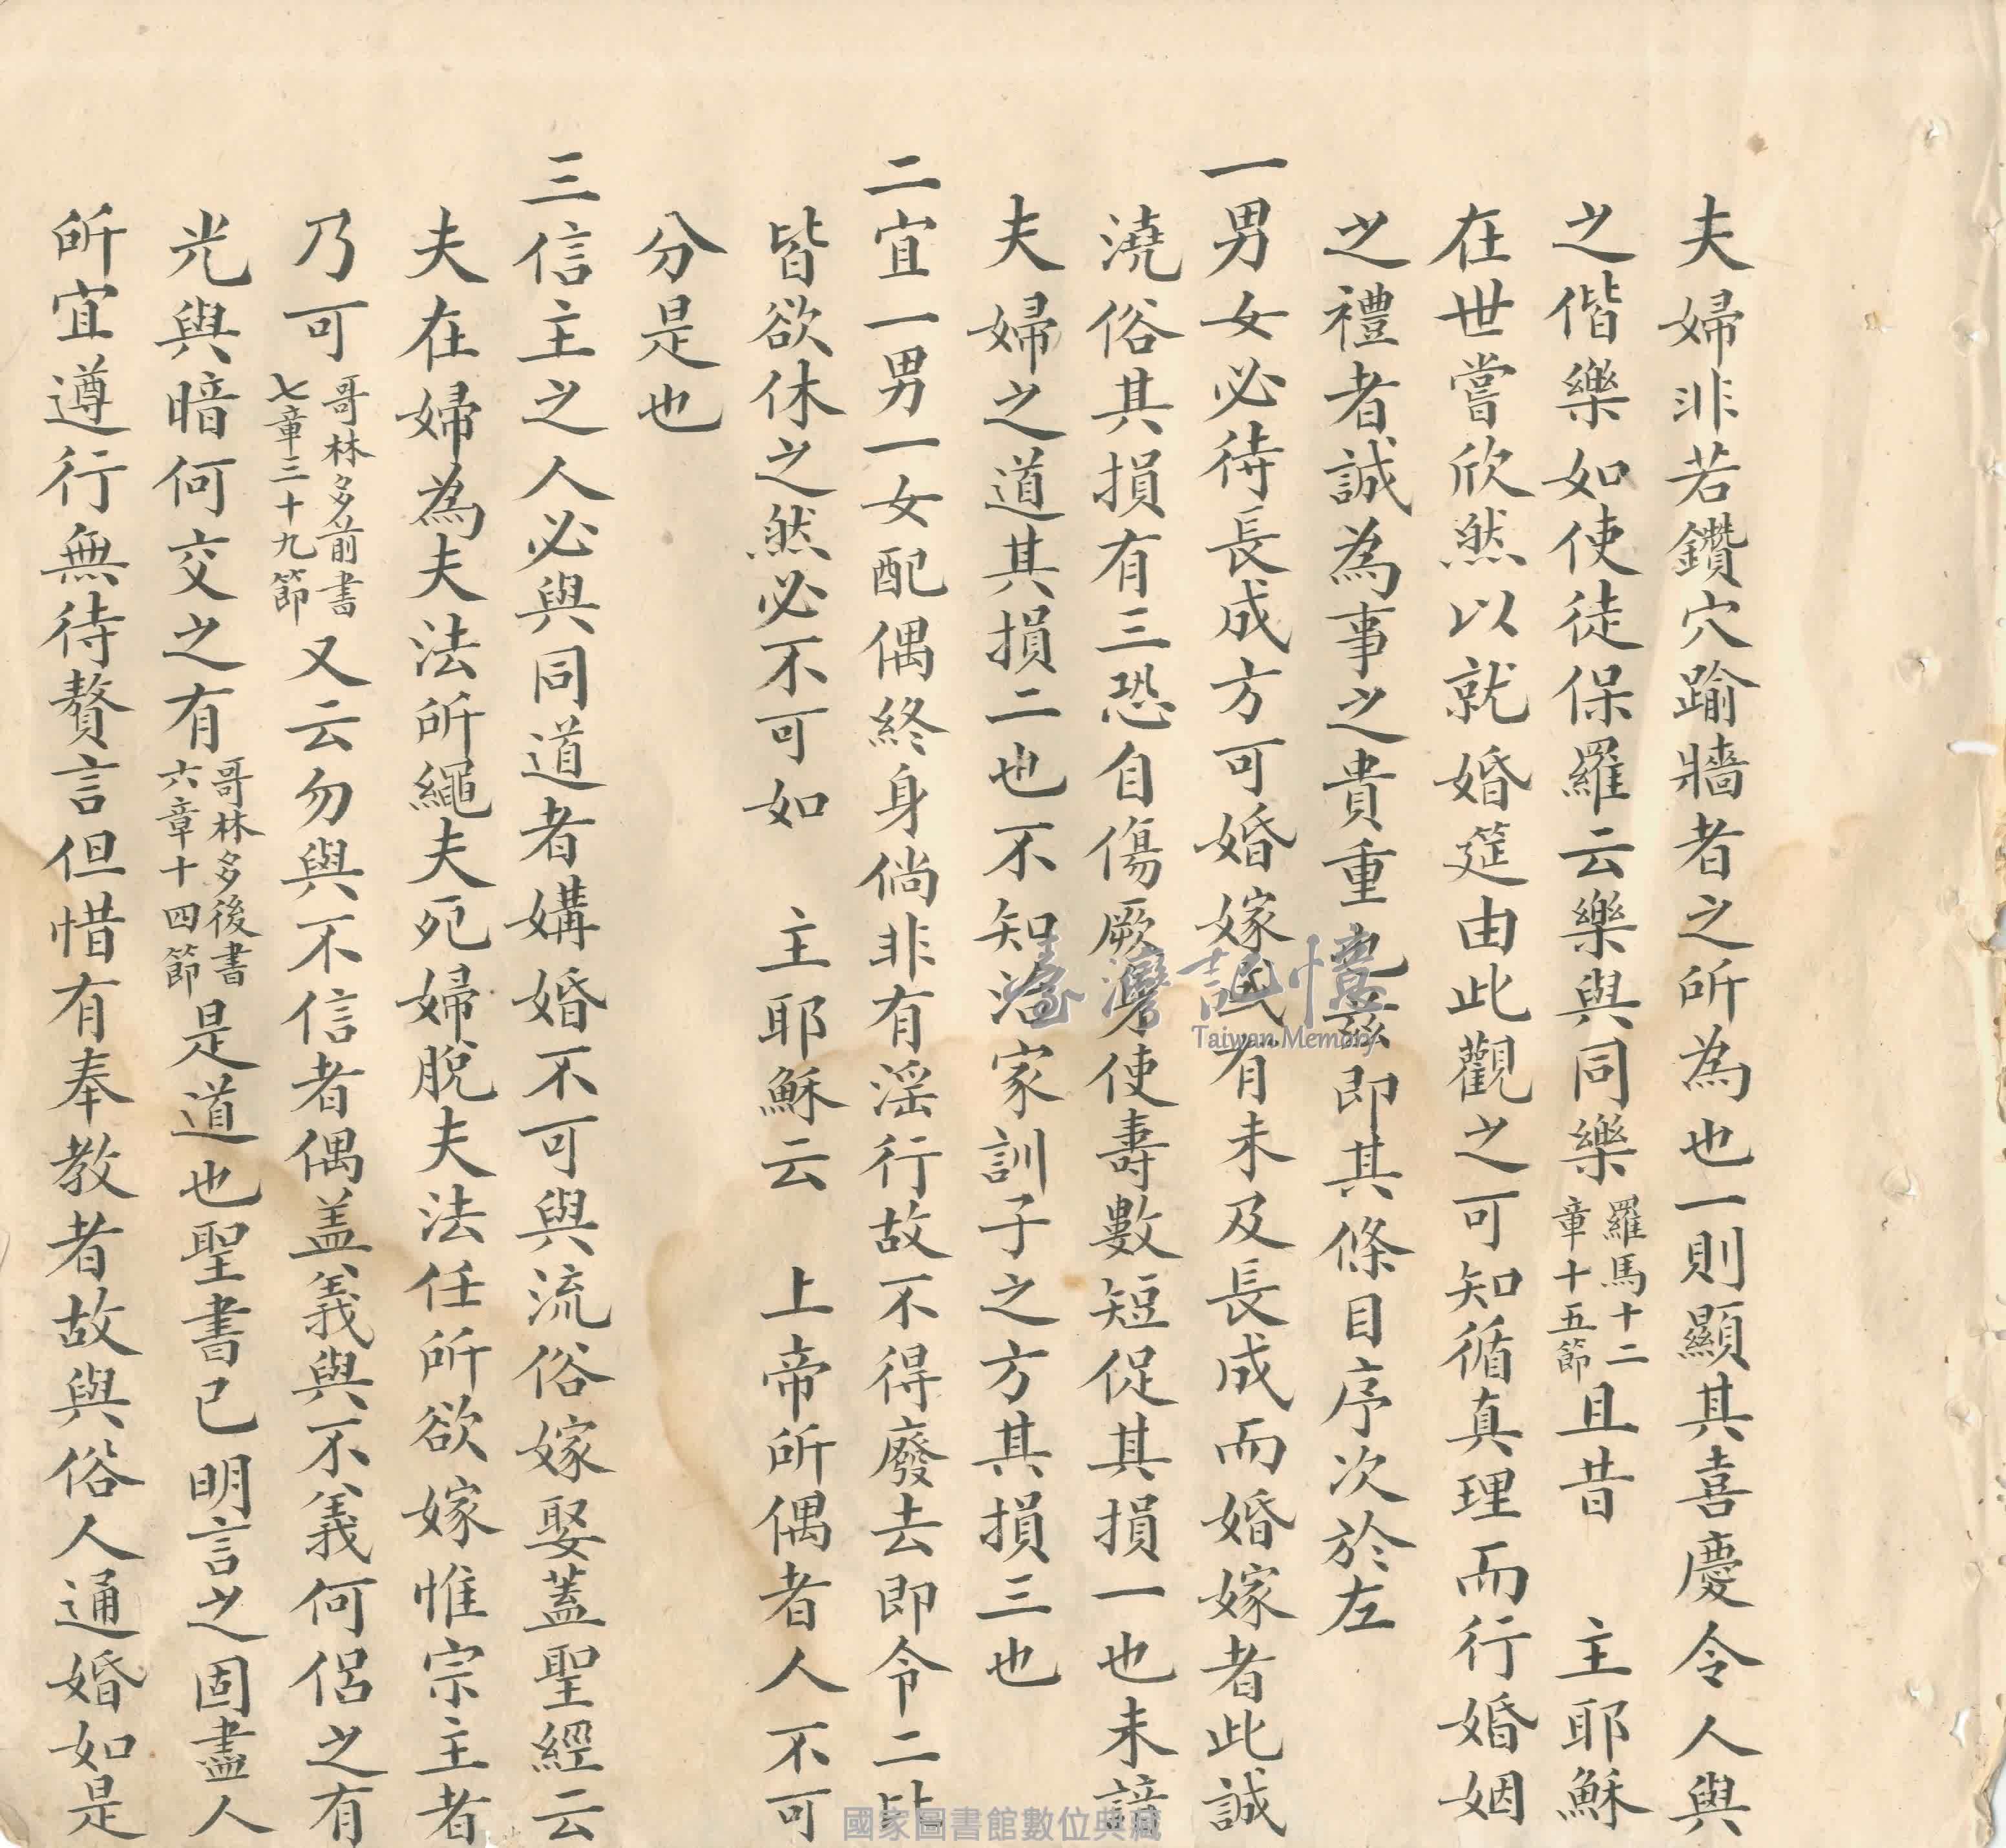 夫婦非若鑽穴踰牆者之所為也一則顯其喜慶令人與
之偕樂如使徒保羅云樂與同樂羅馬十二章十五節且昔 主耶穌
在世嘗欣然以就婚筵由此觀之可知循真理而行婚姻
之禮者誠為事之貴重也茲即其條目序次於左
一男女必待長成方可婚嫁或有未及長成而婚嫁者此誠
澆俗其損有三恐自傷厥身使壽數短促其損一也未諳
夫婦之道其損二也不知治家訓子之方其損三也
二宜一男一女配偶終身倘非有淫行故不得廢去即令二比
皆欲休之然必不可如 主耶穌云 上帝所偶者人不可
分是也
三信主之人必與同道者媾婚不可與流俗嫁娶蓋聖經云
夫在婦為夫法所繩夫死婦脫夫法任所欲嫁惟宗主者
乃可哥林多前書七章三十九節又云勿與不信者偶盖義與不義何侶之有
光與暗何交之有哥林多後書六章十四節是道也聖書已明言之固盡人
所宜遵行無待贅言但惜有奉教者故與俗人通婚如是
臺灣記憶
Taiwan Memory
國家圖書館數位典藏